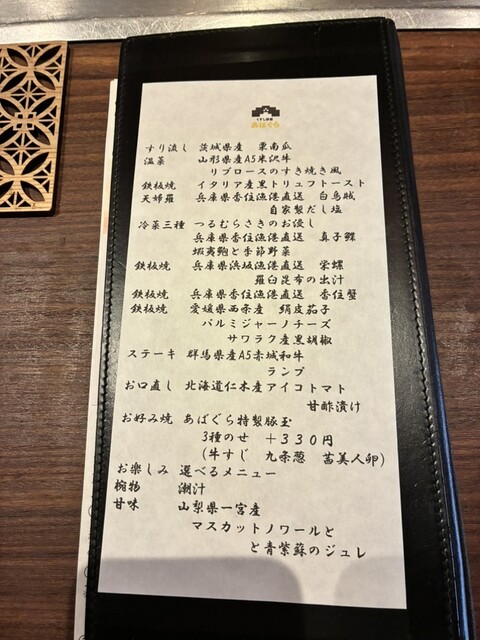 あばぐら
すり流し 茨城県産 栗南瓜
温菜 山形県産A5米沢牛
リブロースのすき焼き風
鉄板焼 イタリア産黒トリュフトースト
天婦羅 兵庫県香住漁港直送 白烏賊
自家製だし塩
冷菜三種 つるむらさきのお浸し
兵庫県香住漁港直送 真子鰈
蝦夷鮑と季節野菜
鉄板焼 兵庫県浜坂漁港直送 栄螺
羅臼昆布の出汁
鉄板焼 兵庫県香住漁港直送 香住蟹
鉄板焼 愛媛県西条産 絹皮茄子
パルミジャーノチーズ
サワラク産黒胡椒
ステーキ 群馬県産A5赤城和牛
ランプ
お口直し 北海道仁木産アイコトマト
甘酢漬け
お好み焼 あばぐら特製豚玉
3種のせ +330円
(牛すじ 九条葱 茜美人卵)
お楽しみ 選べるメニュー
椀物 潮汁
甘味 山梨県一宮産
マスカットノワールと
と青紫蘇のジュレ